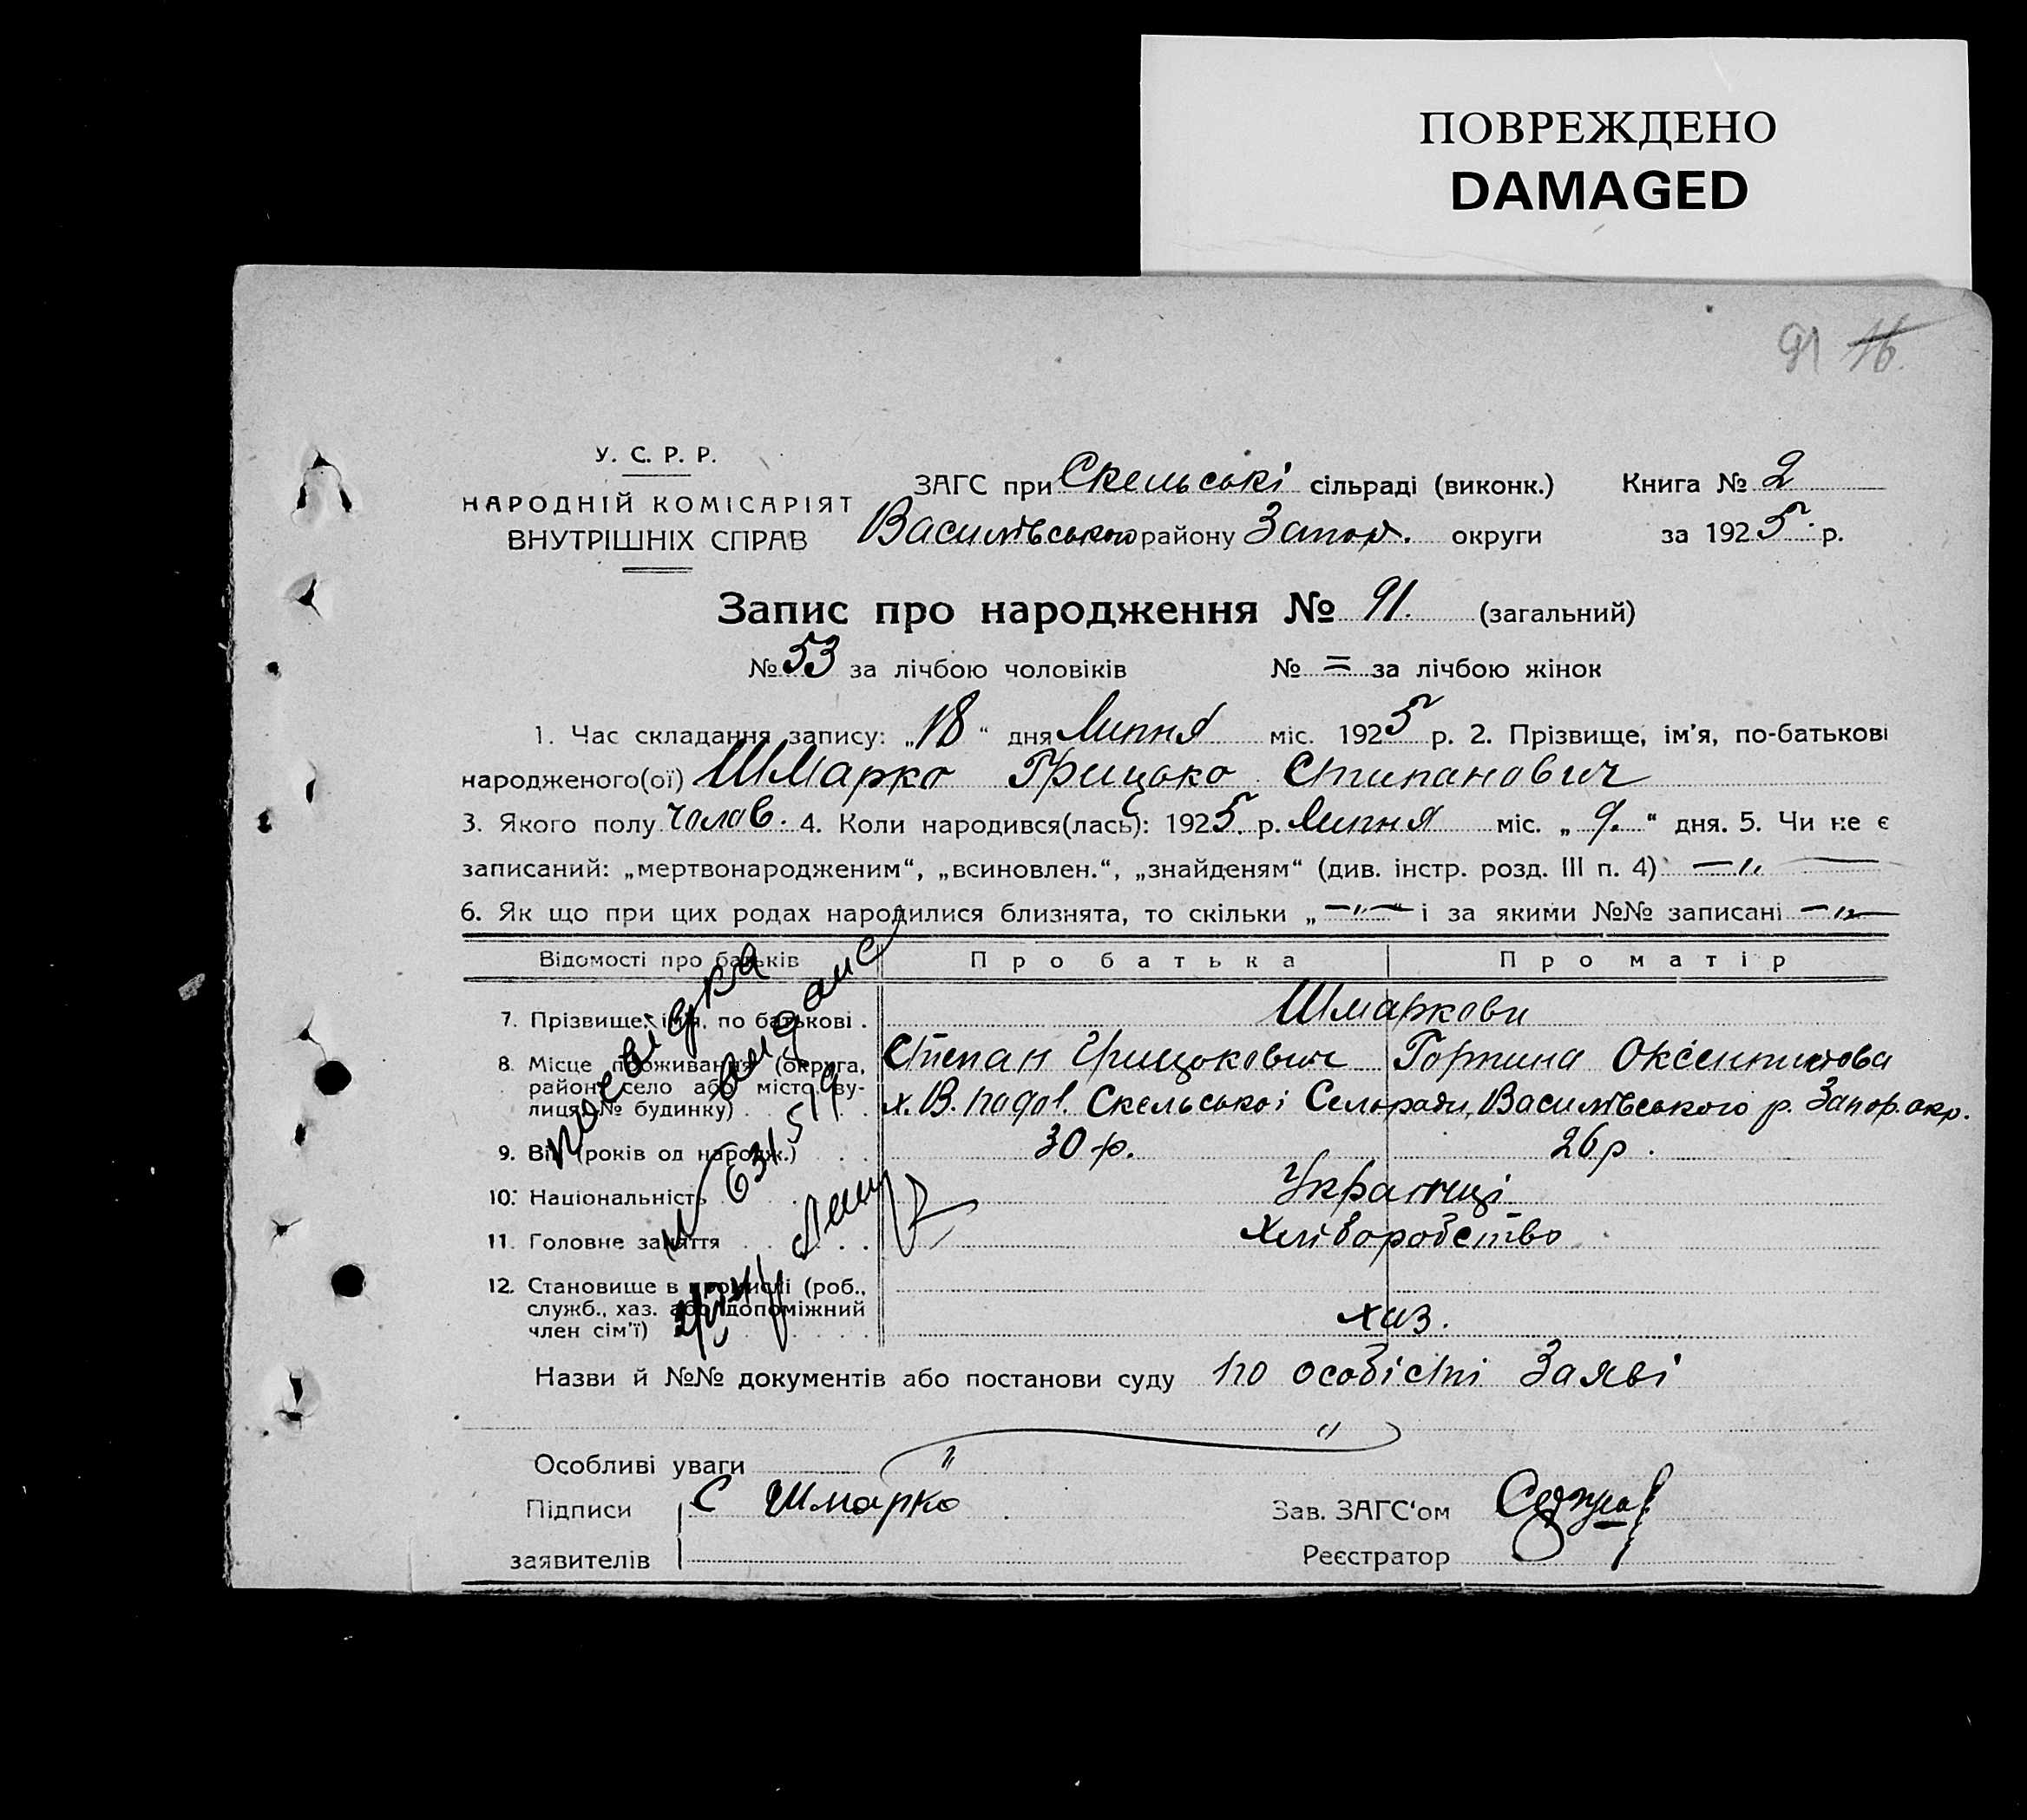 ПОВРЕЖДЕНО
DAMAGED
91 16.
У. С. Р. Р.
НАРОДНІЙ КОМІСАРІЯТ
ВНУТРІШНІХ СПРАВ
ЗАГС при Скельські сільраді (виконк.) Книга № 2
Василівського району Запор. округи за 1925 р.
Запис про народження № 91. (загальний)
№ 53 за лічбою чоловіків № = за лічбою жінок
1. Час складання запису: „18“ дня Липня міс. 1925 р. 2. Прізвище, ім'я, по-батькові
народженого(ої) Шмарко Грицько Стипанович
3. Якого полу чолов. 4. Коли народився(лась): 1925 р. Липня міс. „9.“ дня. 5. Чи не є
записаний: „мертвонародженим“, „всиновлен.“, „знайденям“ (див. інстр. розд. III п. 4) —„—
6. Як що при цих родах народилися близнята, то скільки „—„—“ і за якими №№ записані —„—
Відомості про батьків Про батька Про матір
7. Прізвище, ім'я, по батькові . Шмаркови
Степан Грицькович Горпина Оксентиєва
8. Місце проживання (округа,
район, село або місто, ву-
лиця, № будинку) х. В. Сельської Сельради, Василівського р. Запор. окр.
9. Вік (років од народж.) 30 р. 26 р.
10. Національність Українці
11. Головне заняття Хліборобство
12. Становище в промислі (роб.,
служб., хаз. або допоміжний
член сім'ї) хаз.
посвідка видана
№ 634519
Назви й №№ документів або постанови суду по особісті Заяві
„
Особливі уваги „
Підписи С Шмарко Зав. ЗАГС'ом
заявителів Реєстратор